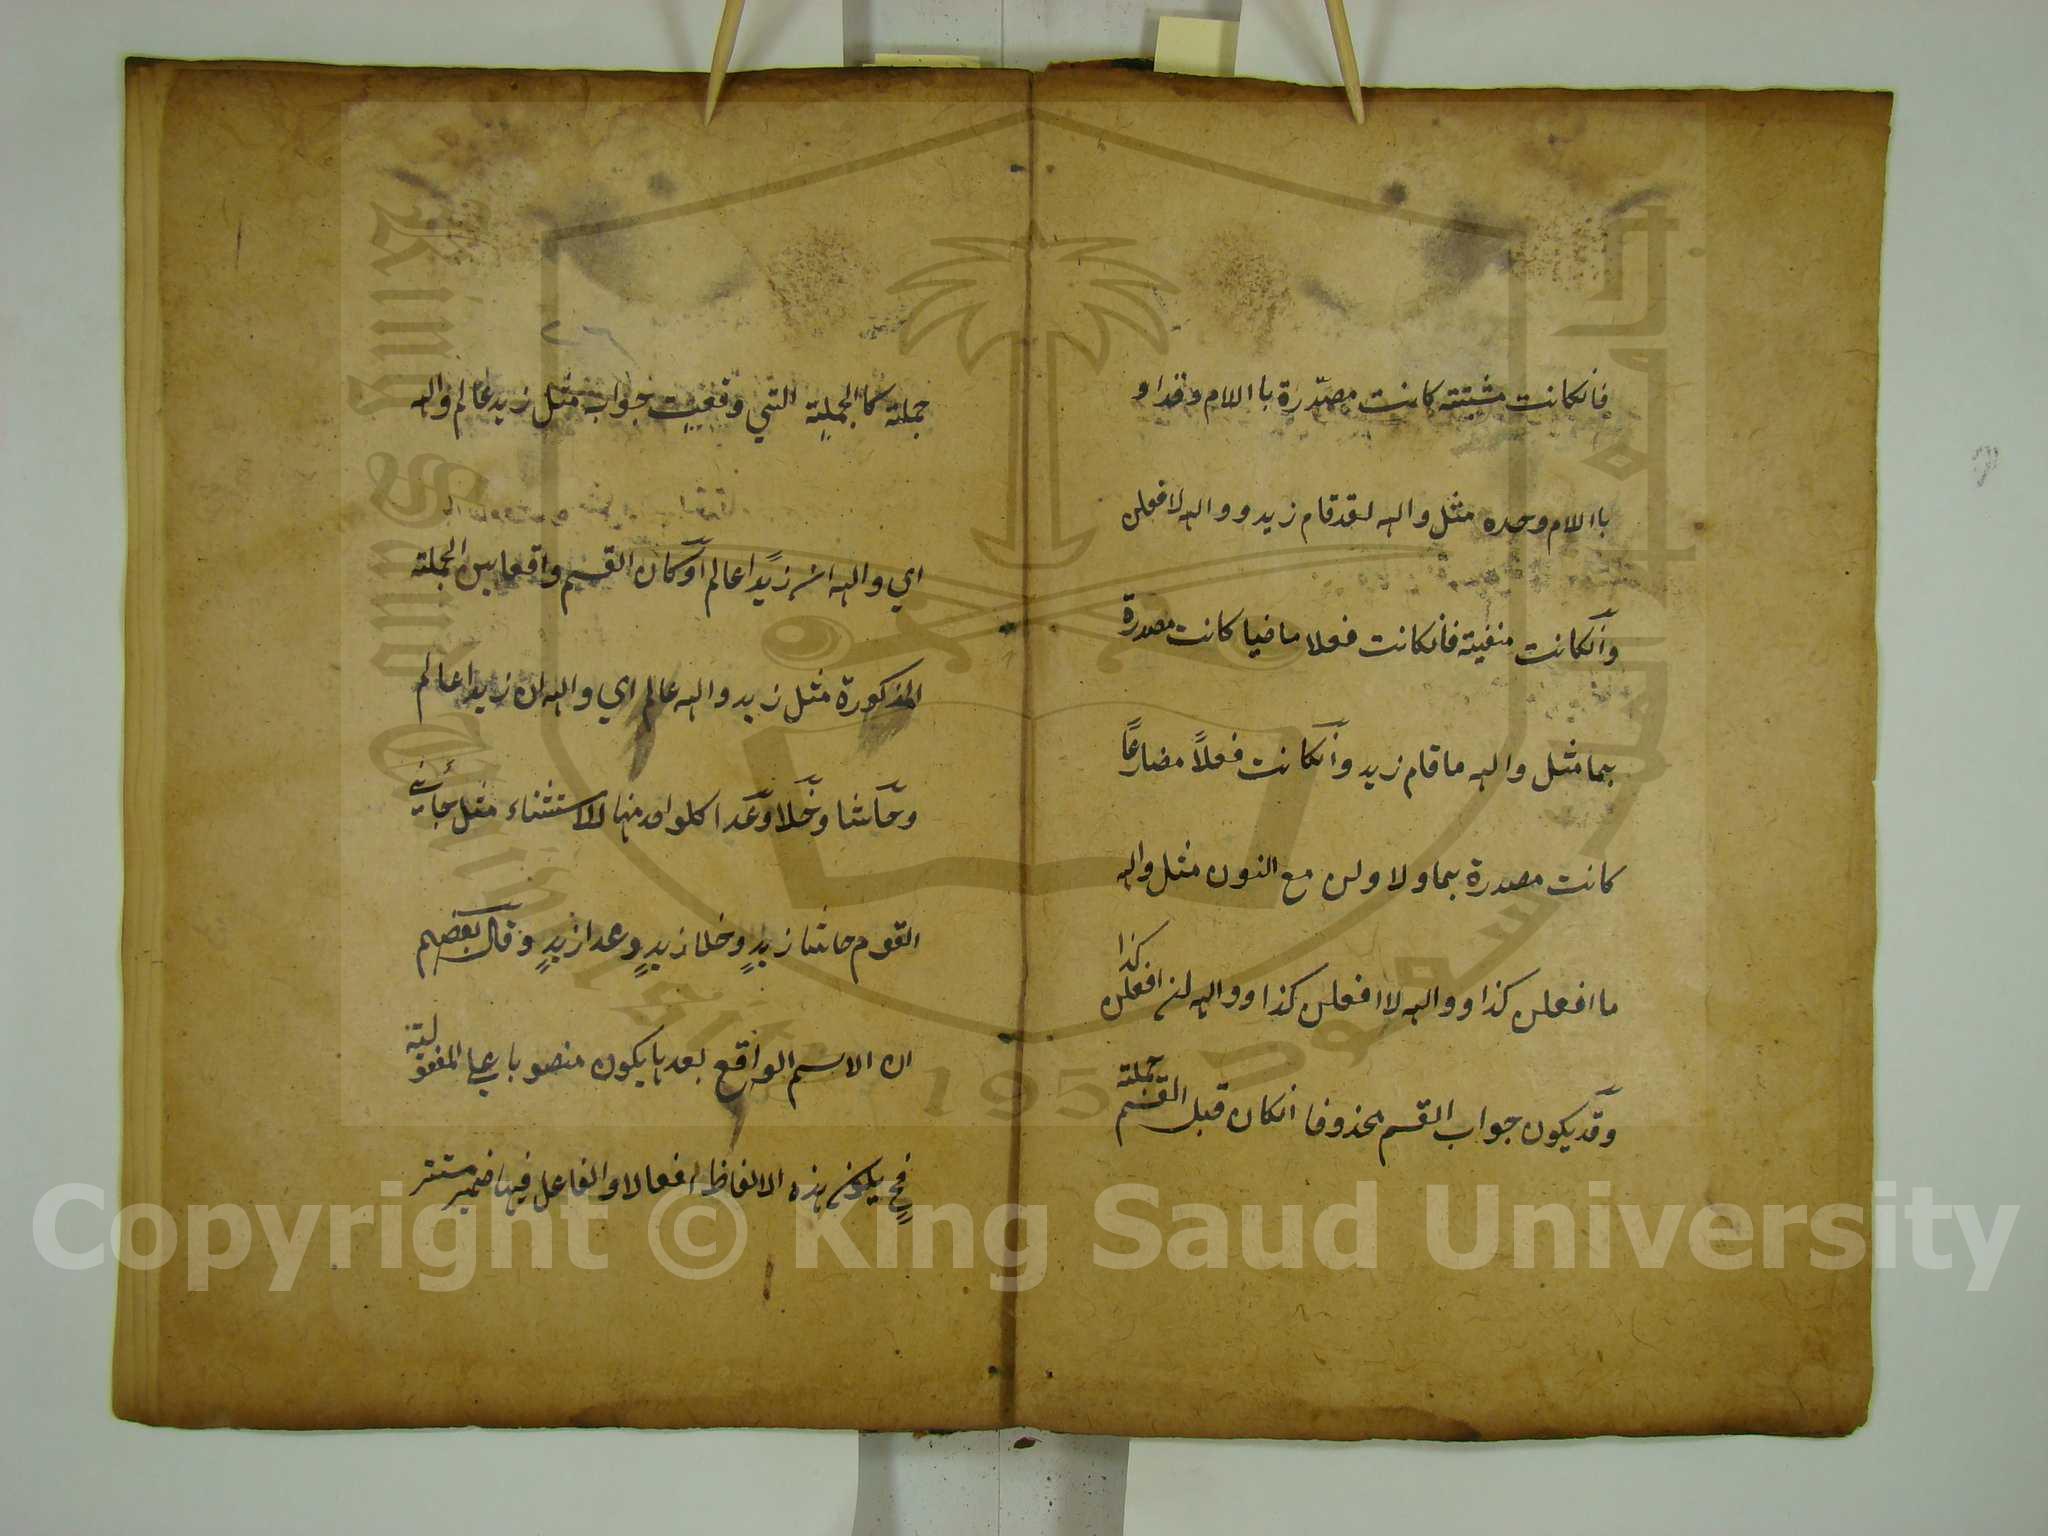 فانكانت مثبتة كانت مصدّرة با اللام وقد او
با اللام وحده مثل والله لقد قام زيد ووالله لافعلن
وانكانت منفية فانكانت فعلا ماضيا كانت مصدرة
بما مثل والله ما قام زيد وانكانت فعلاً مضارعاً
كانت مصدرة بما ولا ولن مع النون مثل والله
ما افعلن كذا ووالله لا افعلن كذا ووالله لن افعلن كذا
وقد يكون جواب القسم محذوفا انكان قبل القسم جملة
٢٦
جملة كا الجملة التي وقعت جواب مثل زيد عالم والله
اي والله ان زيدًا عالم او كان القسم واقعا بين الجملة
المذكورة مثل زيد والله عالم اي والله ان زيدا عالم
وحاشا وخلا وعدا كلواحد منها للاستثناء مثل جائني
القوم حاشا زيدٍ وخلا زيدٍ وعدا زيدٍ وقال بعضهم
ان الاسم الواقع بعدها يكون منصوبا على المفعولية
فح يكون هذه الالفاظ افعالا والفاعل فيها ضمير مستتر
King Saud University
1957
Copyright © King Saud University